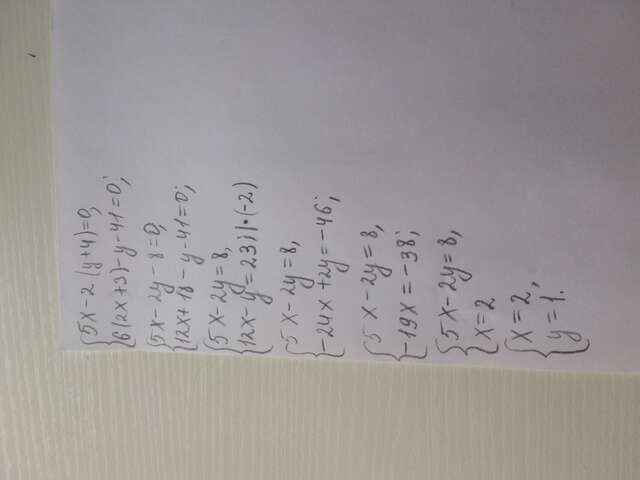 {5x-2(y+4)=0,
6(2x+3)-y-41=0;
{5x-2y-8=0,
12x+18-y-41=0;
{5x-2y=8,
12x-y=23;|•(-2)
{5x-2y=8,
-24x+2y=-46;
{5x-2y=8,
-19x=-38;
{5x-2y=8,
x=2
{x=2,
y=1.